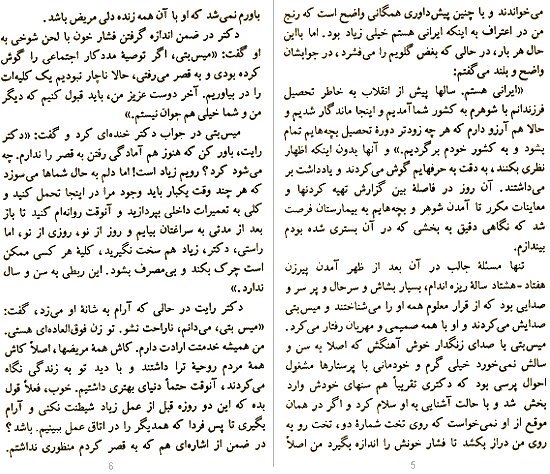 می‌خواندند و با چنین پیش‌داوری همگانی واضح است که رنج
من در اعتراف به اینکه ایرانی هستم خیلی زیاد بود. اما بااین
حال هر بار، در حالی که بغض گلویم را می‌فشرد، در جوابشان
واضح و بلند می‌گفتم:
«ایرانی هستم. سالها پیش از انقلاب به خاطر تحصیل
فرزندانم با شوهرم به کشور شما آمدیم و اینجا ماندگار شدیم و
حالا هم آرزو دارم که هر چه زودتر دورهٔ تحصیل بچه‌هایم تمام
بشود و به کشور خودم برگردیم.» و آنها بدون اینکه اظهار
نظری بکنند، به دقت به حرفهایم گوش می‌کردند و یادداشت بر
می‌داشتند. آن روز در فاصلهٔ بین گزارش تهیه کردنها و
معاینات مکرر تا آمدن شوهر و بچه‌هایم به بیمارستان فرصت
شد که نگاهی دقیق به بخشی که در آن بستری شده بودم
بیندازم.
تنها مسئلهٔ جالب در آن بعد از ظهر آمدن پیرزن
هفتاد-هشتاد سالهٔ ریزه اندام، بسیار بشاش و سرحال و پر سر و
صدایی بود که از قرار معلوم همه او را می‌شناختند و میس‌بتی
صدایش می‌کردند و او با همه صمیمی و مهربان رفتار می‌کرد.
میس‌بتی با صدای زنگدار خوش آهنگش که اصلاً به سن و
سالش نمی‌خورد خیلی گرم و خودمانی با پرستارها مشغول
احوال پرسی بود که دکتری تقریباً هم سنهای خودش وارد
بخش شد و با حالت آشنایی به او سلام کرد و اگر در همان
موقع از او نمی‌خواست که روی تخت شمارهٔ دو، تخت رو به
روی من دراز بکشد تا فشار خونش را اندازه بگیرد من اصلاً
5
باورم نمی‌شد که او با آن همه زنده دلی مریض باشد.
دکتر در ضمن اندازه گرفتن فشار خون با لحن شوخی به
او گفت: «میس‌بتی، اگر توصیهٔ مددکار اجتماعی را گوش
کرده بودی و به قصر می‌رفتی، حالا ناچار نبودیم یک کلیه‌ات
را در بیاوریم. آخر دوست عزیز من، باید قبول کنیم که دیگر
من و شما خیلی هم جوان نیستم.»
میس‌بتی در جواب دکتر خنده‌ای کرد و گفت: «دکتر
رایت، باور کن که هنوز هم آمادگی رفتن به قصر را ندارم. چه
می‌شود کرد؟ رویم زیاد است! اما دلم به حال شماها می‌سوزد
که هر چند وقت یکبار باید وجود مرا در اینجا تحمل کنید و
کلی به تعمیرات داخلی بپردازید و آنوقت روانه‌ام کنید تا باز
بعد از مدتی به سراغتان بیایم و روز از نو، روزی از نو، اما
راستی، دکتر، زیاد هم سخت نگیرید، کلیهٔ هر کسی ممکن
است چرک بکند و بی‌مصرف بشود. این ربطی به سن و سال
ندارد.»
دکتر رایت در حالی که آرام به شانهٔ او می‌زد، گفت:
«میس بتی، می‌دانم، ناراحت نشو. تو زن فوق‌العاده‌ای هستی.
من همیشه خدمتت ارادت دارم. کاش همهٔ مریضها، اصلاً کاش
همهٔ مردم روحیهٔ ترا داشتند و با دید تو به زندگی نگاه
می‌کردند، آنوقت حتماً دنیای بهتری داشتیم. خوب، فعلاً قول
بده که این دو روزه قبل از عمل زیاد شیطنت نکنی و آرام
بگیری تا پس فردا که همدیگر را در اتاق عمل ببینیم. باشد؟
در ضمن از اشاره‌ای هم که به قصر کردم منظوری نداشتم.
6